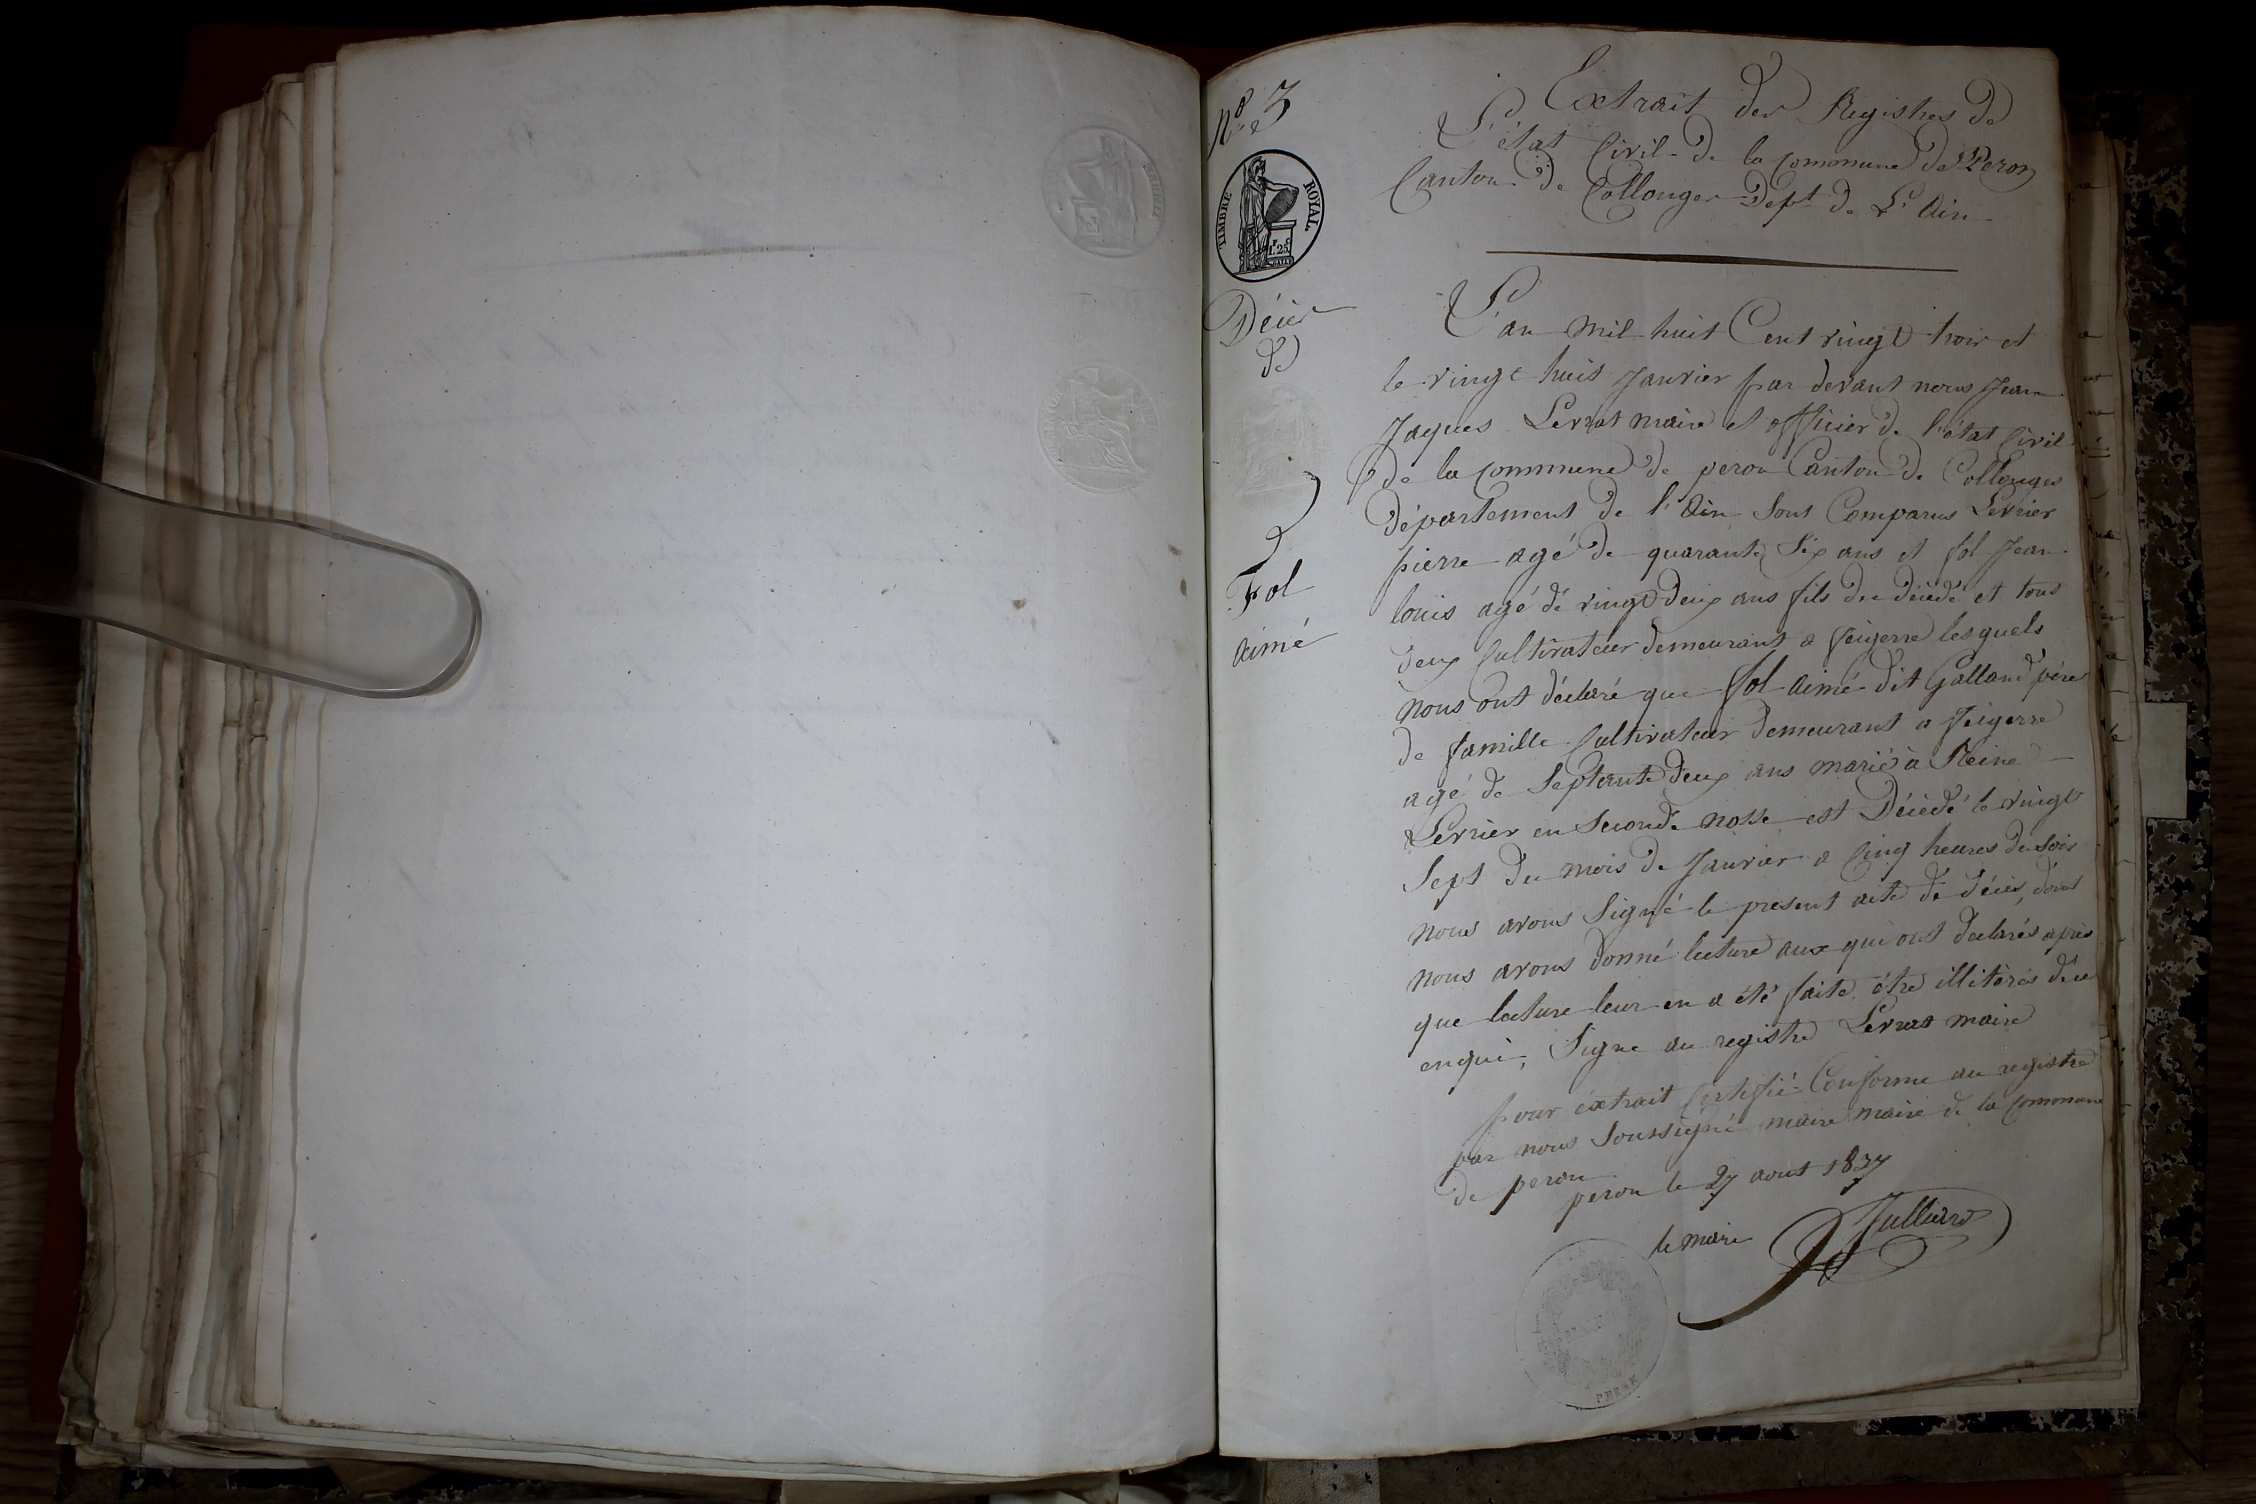 N° 3
TIMBRE ROYAL
1f 25c
Décès
de
Fol
aimé
Extrait des Registres de
L'état Civil de la commune de Peron
Canton de Collonges Dept de L'Ain
L'an mil huit Cent vingt trois et
le vingt huit Janvier par devant nous Jean
Jaques Levrat maire et officier de l'état Civil
de la commune de peron Canton de Collonges
département de l'Ain Sont Comparus Perrier
pierre agé de quarante Six ans et fol Jean
louis agé de vingt deux ans fils du décédé et tous
deux Cultivateur demeurant a feigerre lesquels
nous ont déclaré que fol aimé dit Galland père
de famille Cultivateur demeurant a feigerre
agé de Septante deux ans marié à Reine
Perrier en Seconde nosse est Décédé le vingt
Sept du mois de Janvier a Cinq heures du soir
nous avons Signé le present acte de décès, dont
nous avons donné lecture aux qui ont declarés après
que lecture leur en a été faite être illiterés de ce
enquis, Signe au registre Levrat maire
pour extrait Certifié Conforme au registre
par nous Soussigné maire maire de la commune
de peron
peron le 27 aout 1837
le maire Julliard
PERON